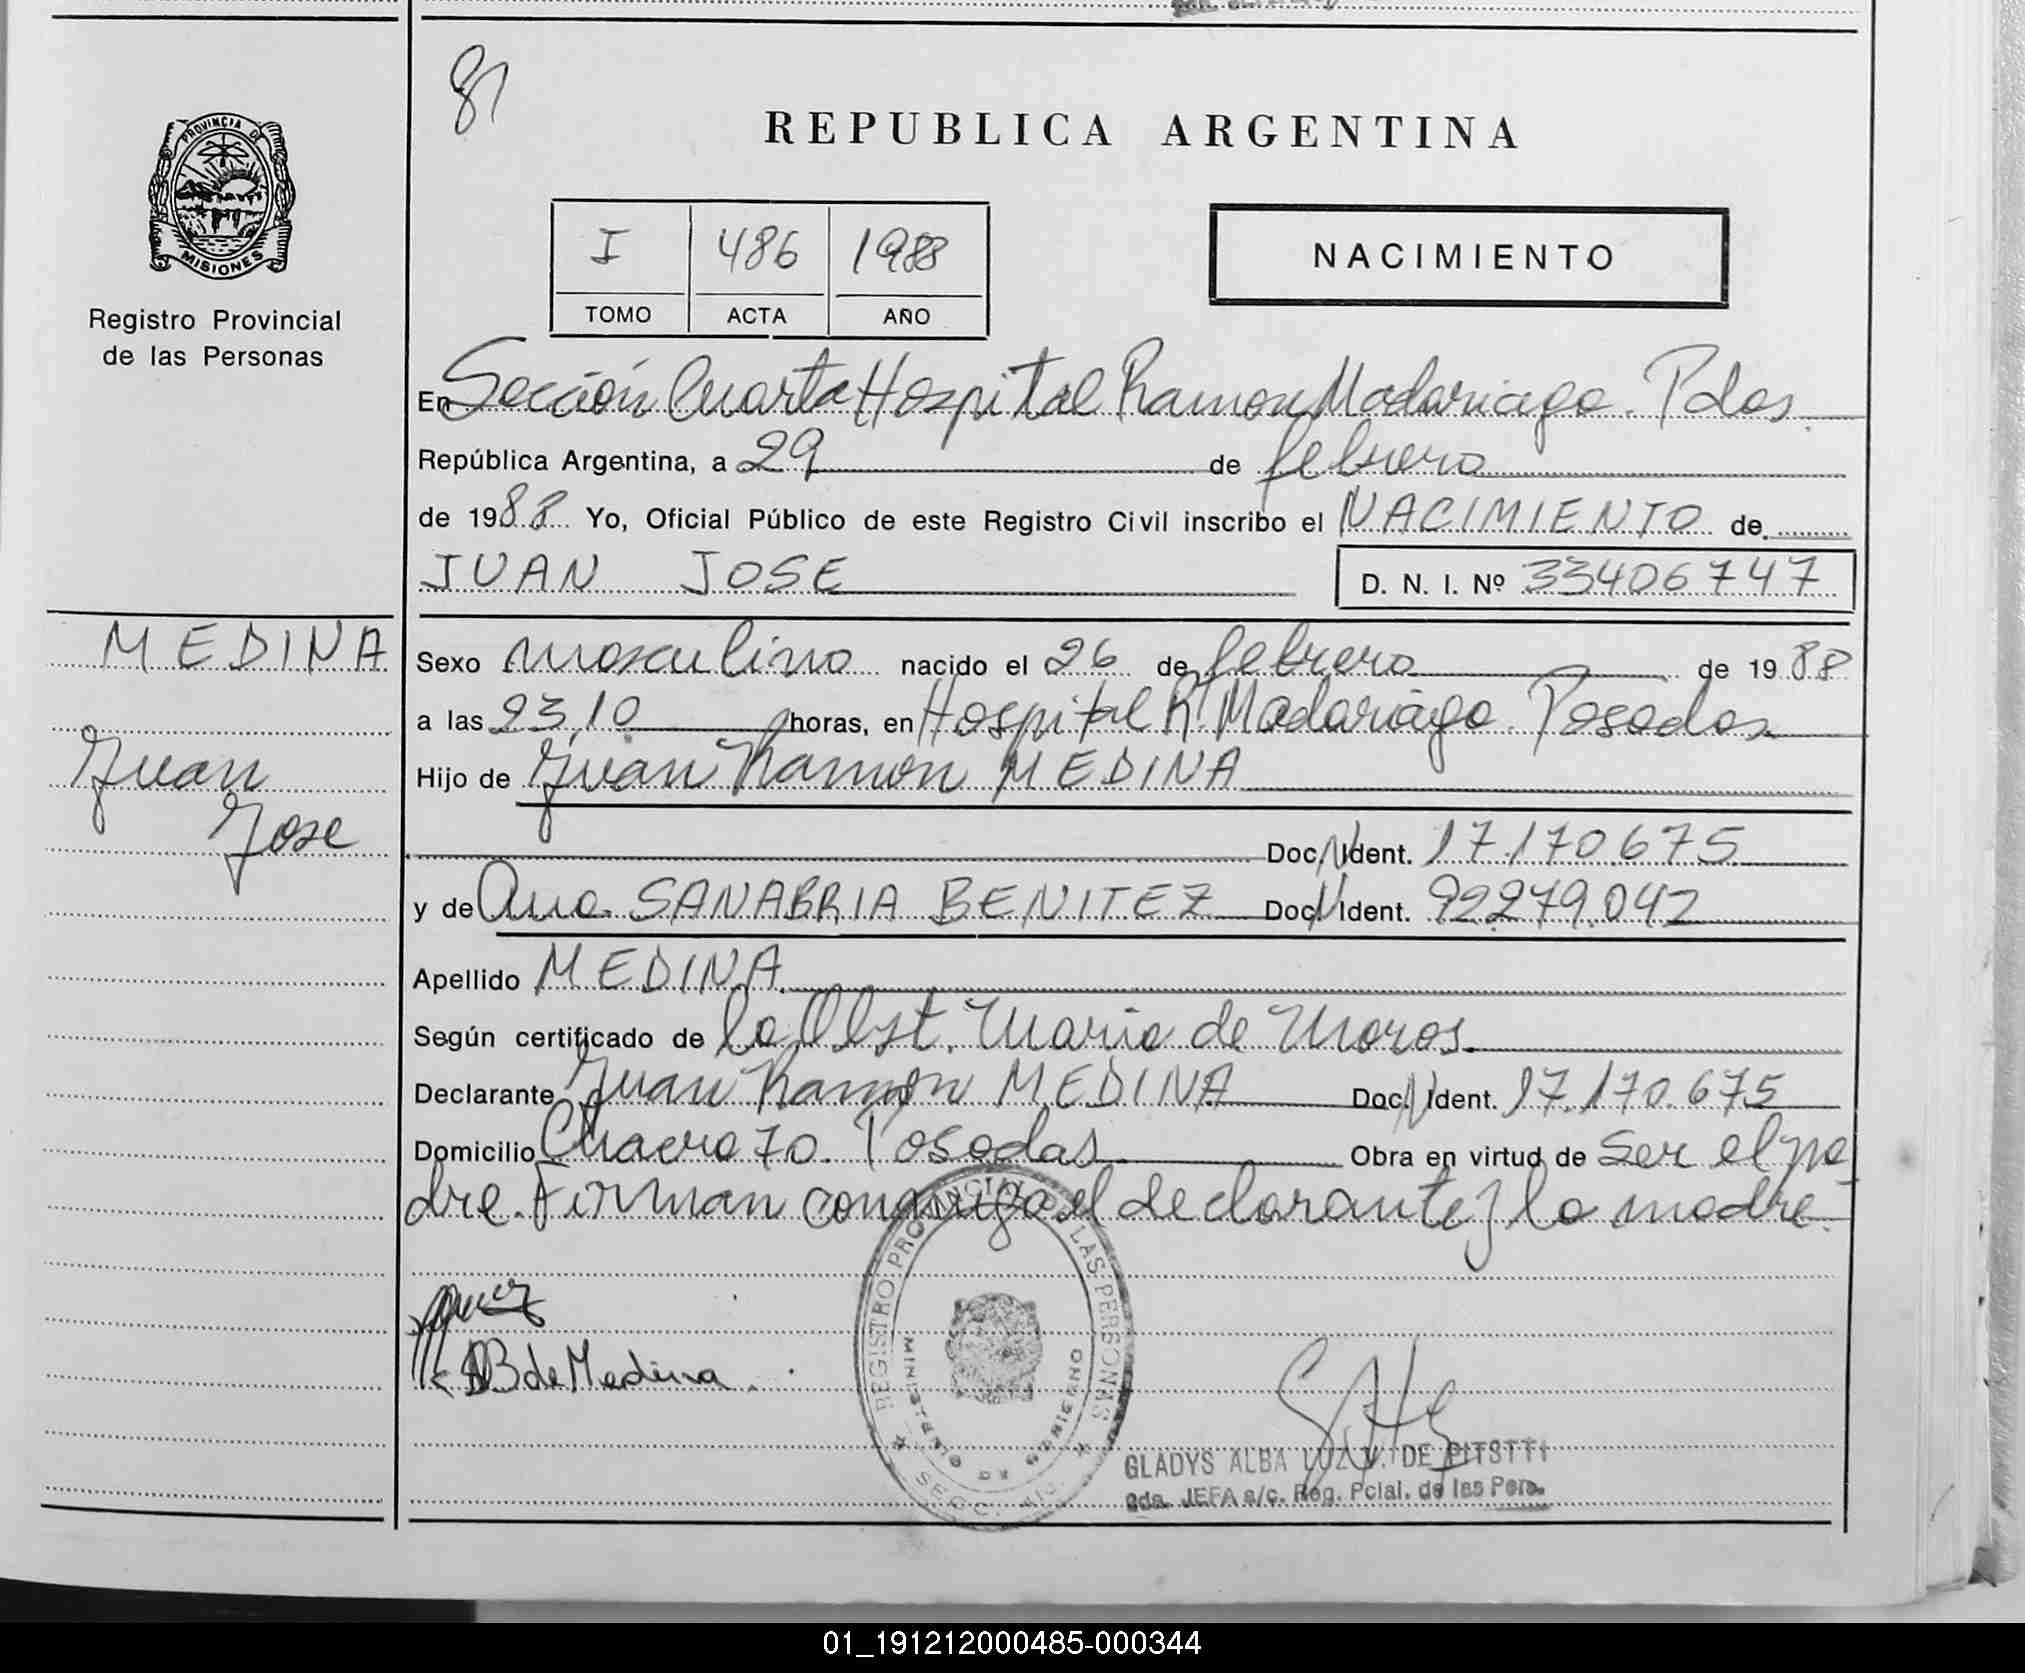 81
REPUBLICA ARGENTINA
PROVINCIA DE
MISIONES
Registro Provincial
de las Personas
I 486 1988
TOMO ACTA AÑO
NACIMIENTO
En Sección Cuarta Hospital Ramon Madariaga. Pdas.
República Argentina, a 29 de febrero
de 1988 Yo, Oficial Público de este Registro Civil inscribo el NACIMIENTO de
JUAN JOSE
D. N. I. Nº 33406747
MEDINA
Juan
Jose
Sexo masculino nacido el 26 de febrero de 1988
a las 23,10 horas, en Hospital R. Madariaga. Posadas
Hijo de Juan Ramon MEDINA
Doc. N Ident. 17.170.675
y de Ana SANABRIA BENITEZ Doc. N Ident. 92279.042
Apellido MEDINA
Según certificado de la Obst. Maria de Moros.
Declarante Juan Ramon MEDINA Doc. N Ident. 17.170.675
Domicilio Chacra 70. Posadas Obra en virtud de ser el pa
dre. Firman conmigo el declarante y la madre.
de Medina.
REGISTRO PROVINCIAL DE LAS PERSONAS
MINISTERIO DE GOBIERNO
SECC.
GLADYS ALBA LUZ V. DE
2da. JEFA a/c. Reg. Pcial. de las Pers.
01_191212000485-000344